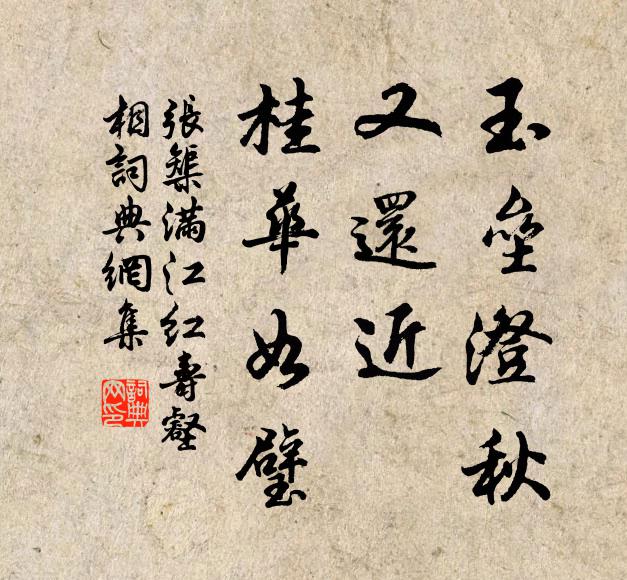 玉壘澄秋
又還近
桂華如璧
張榘滿江紅壽壑
相詞典網集
詞典網印